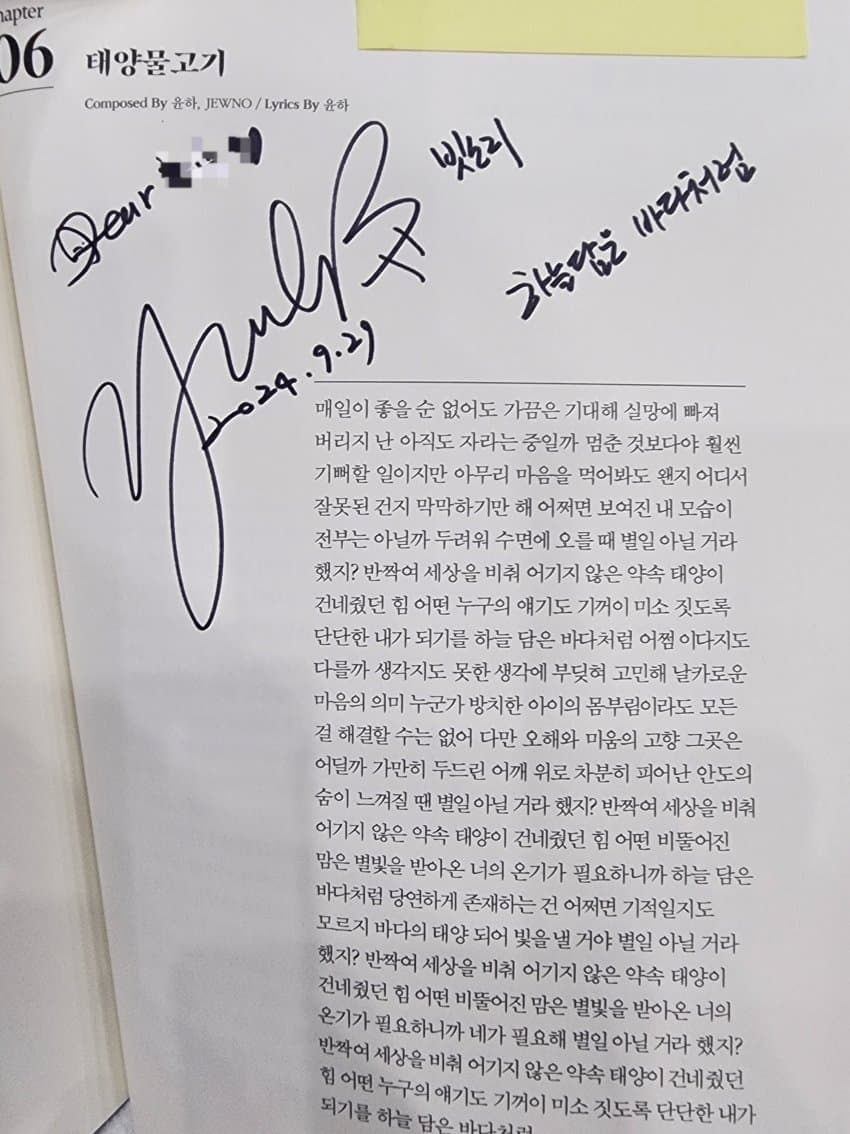 hapter
06
태양물고기
Composed By 윤하, JEWNO / Lyrics By 윤하
Dear
빗소리
하늘담은 바다처럼
2024.9.29
매일이 좋을 순 없어도 가끔은 기대해 실망에 빠져
버리지 난 아직도 자라는 중일까 멈춘 것보다야 훨씬
기뻐할 일이지만 아무리 마음을 먹어봐도 왠지 어디서
잘못된 건지 막막하기만 해 어쩌면 보여진 내 모습이
전부는 아닐까 두려워 수면에 오를 때 별일 아닐 거라
했지? 반짝여 세상을 비춰 어기지 않은 약속 태양이
건네줬던 힘 어떤 누구의 얘기도 기꺼이 미소 짓도록
단단한 내가 되기를 하늘 담은 바다처럼 어쩜 이다지도
다를까 생각지도 못한 생각에 부딪혀 고민해 날카로운
마음의 의미 누군가 방치한 아이의 몸부림이라도 모든
걸 해결할 수는 없어 다만 오해와 미움의 고향 그곳은
어딜까 가만히 두드린 어깨 위로 차분히 피어난 안도의
숨이 느껴질 땐 별일 아닐 거라 했지? 반짝여 세상을 비춰
어기지 않은 약속 태양이 건네줬던 힘 어떤 비뚤어진
맘은 별빛을 받아온 너의 온기가 필요하니까 하늘 담은
바다처럼 당연하게 존재하는 건 어쩌면 기적일지도
모르지 바다의 태양 되어 빛을 낼 거야 별일 아닐 거라
했지? 반짝여 세상을 비춰 어기지 않은 약속 태양이
건네줬던 힘 어떤 비뚤어진 맘은 별빛을 받아온 너의
온기가 필요하니까 네가 필요해 별일 아닐 거라 했지?
반짝여 세상을 비춰 어기지 않은 약속 태양이 건네줬던
힘 어떤 누구의 얘기도 기꺼이 미소 짓도록 단단한 내가
되기를 하늘 담은 바다처럼